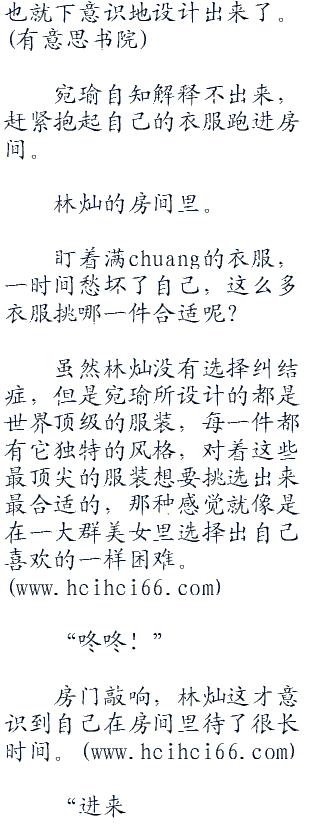 也就下意识地设计出来了。
(有意思书院)
宛瑜自知解释不出来，
赶紧抱起自己的衣服跑进房
间。
林灿的房间里。
盯着满chuang的衣服，
一时间愁坏了自己，这么多
衣服挑哪一件合适呢？
虽然林灿没有选择纠结
症，但是宛瑜所设计的都是
世界顶级的服装，每一件都
有它独特的风格，对着这些
最顶尖的服装想要挑选出来
最合适的，那种感觉就像是
在一大群美女里选择出自己
喜欢的一样困难。
(www.hcihci66.com)
“咚咚！”
房门敲响，林灿这才意
识到自己在房间里待了很长
时间。(www.hcihci66.com)
“进来